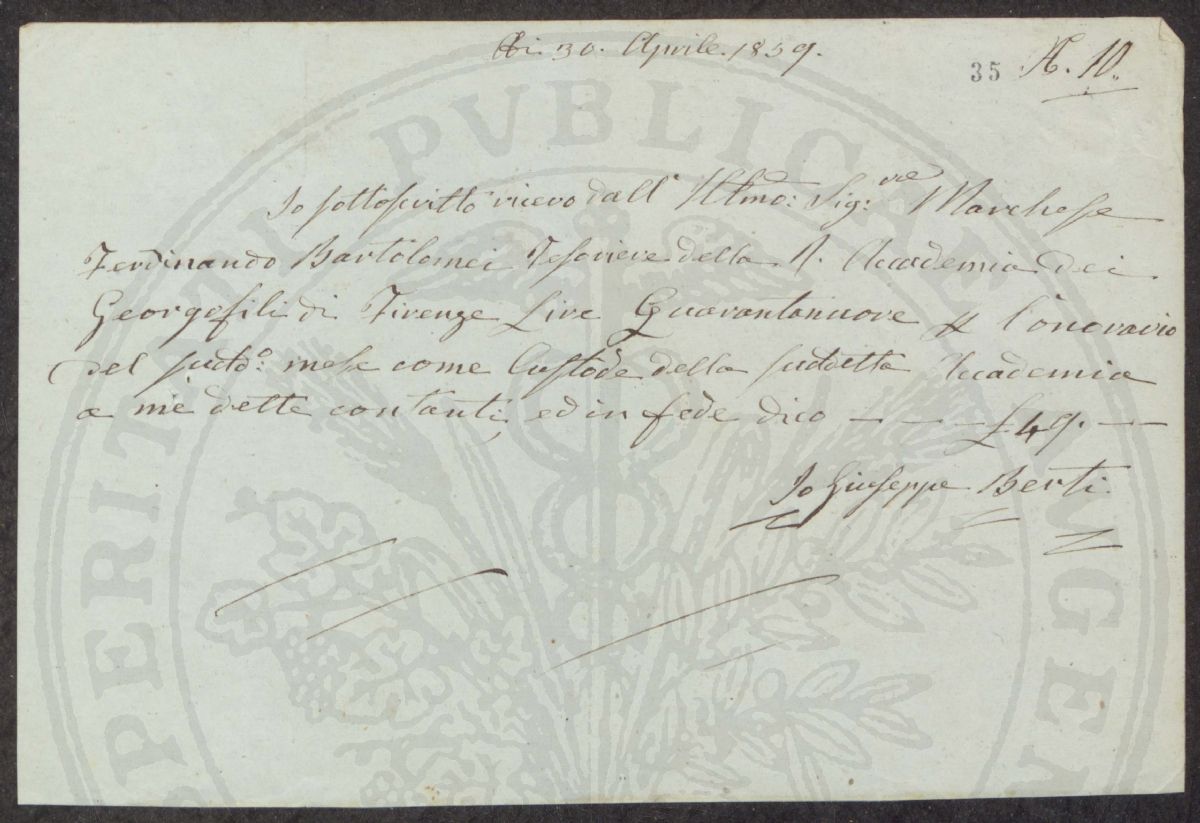 Adi 30. Aprile. 1859.
35 N. 10.
Io sottoscritto ricevo dall' Illmo: Sig:re Marchese
Ferdinando Bartolomei Tesoriere della R. Accademia dei
Georgofili di Firenze Lire Quarantanuove p l'onorario
del sudto: mese come Custode della suddetta Accademia
a me dette contanti, ed in fede dico — — — £ 49. —
Io Giuseppe Berti
PERITATI PUBLICAE AUGEN